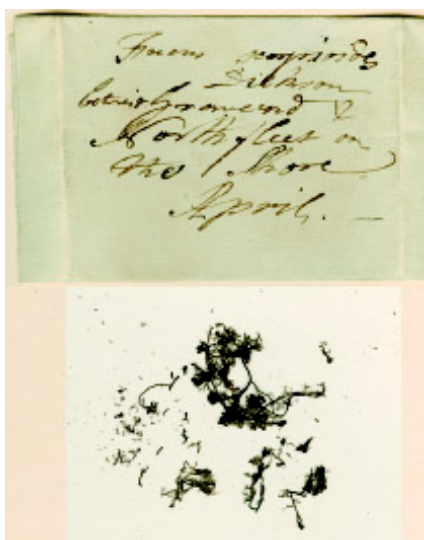 Fucus scorpioides
Dickson
betwixt Gravesend &
Northfleet on
the Shore
April. —